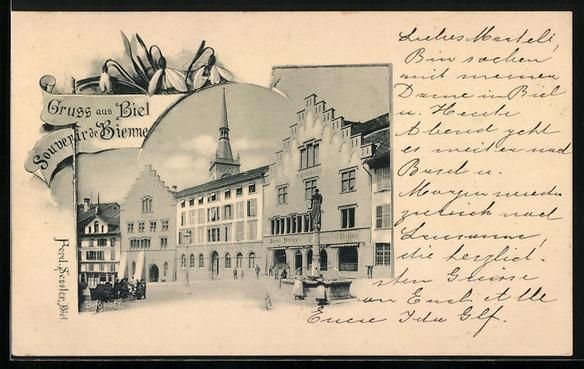 Gruss aus Biel
Souvenir de Bienne
Ferd. Sessler, Biel.
Liebes Marteli!
Bin soeben
mit meinen
Dame in Biel
u. Heute
Abend geht
es weiter nach
Basel u.
Morgen wieder
zurück nach
Lausanne!
die herzlich-
sten Grüsse
an Euch Alle
Eure Ida Glf.